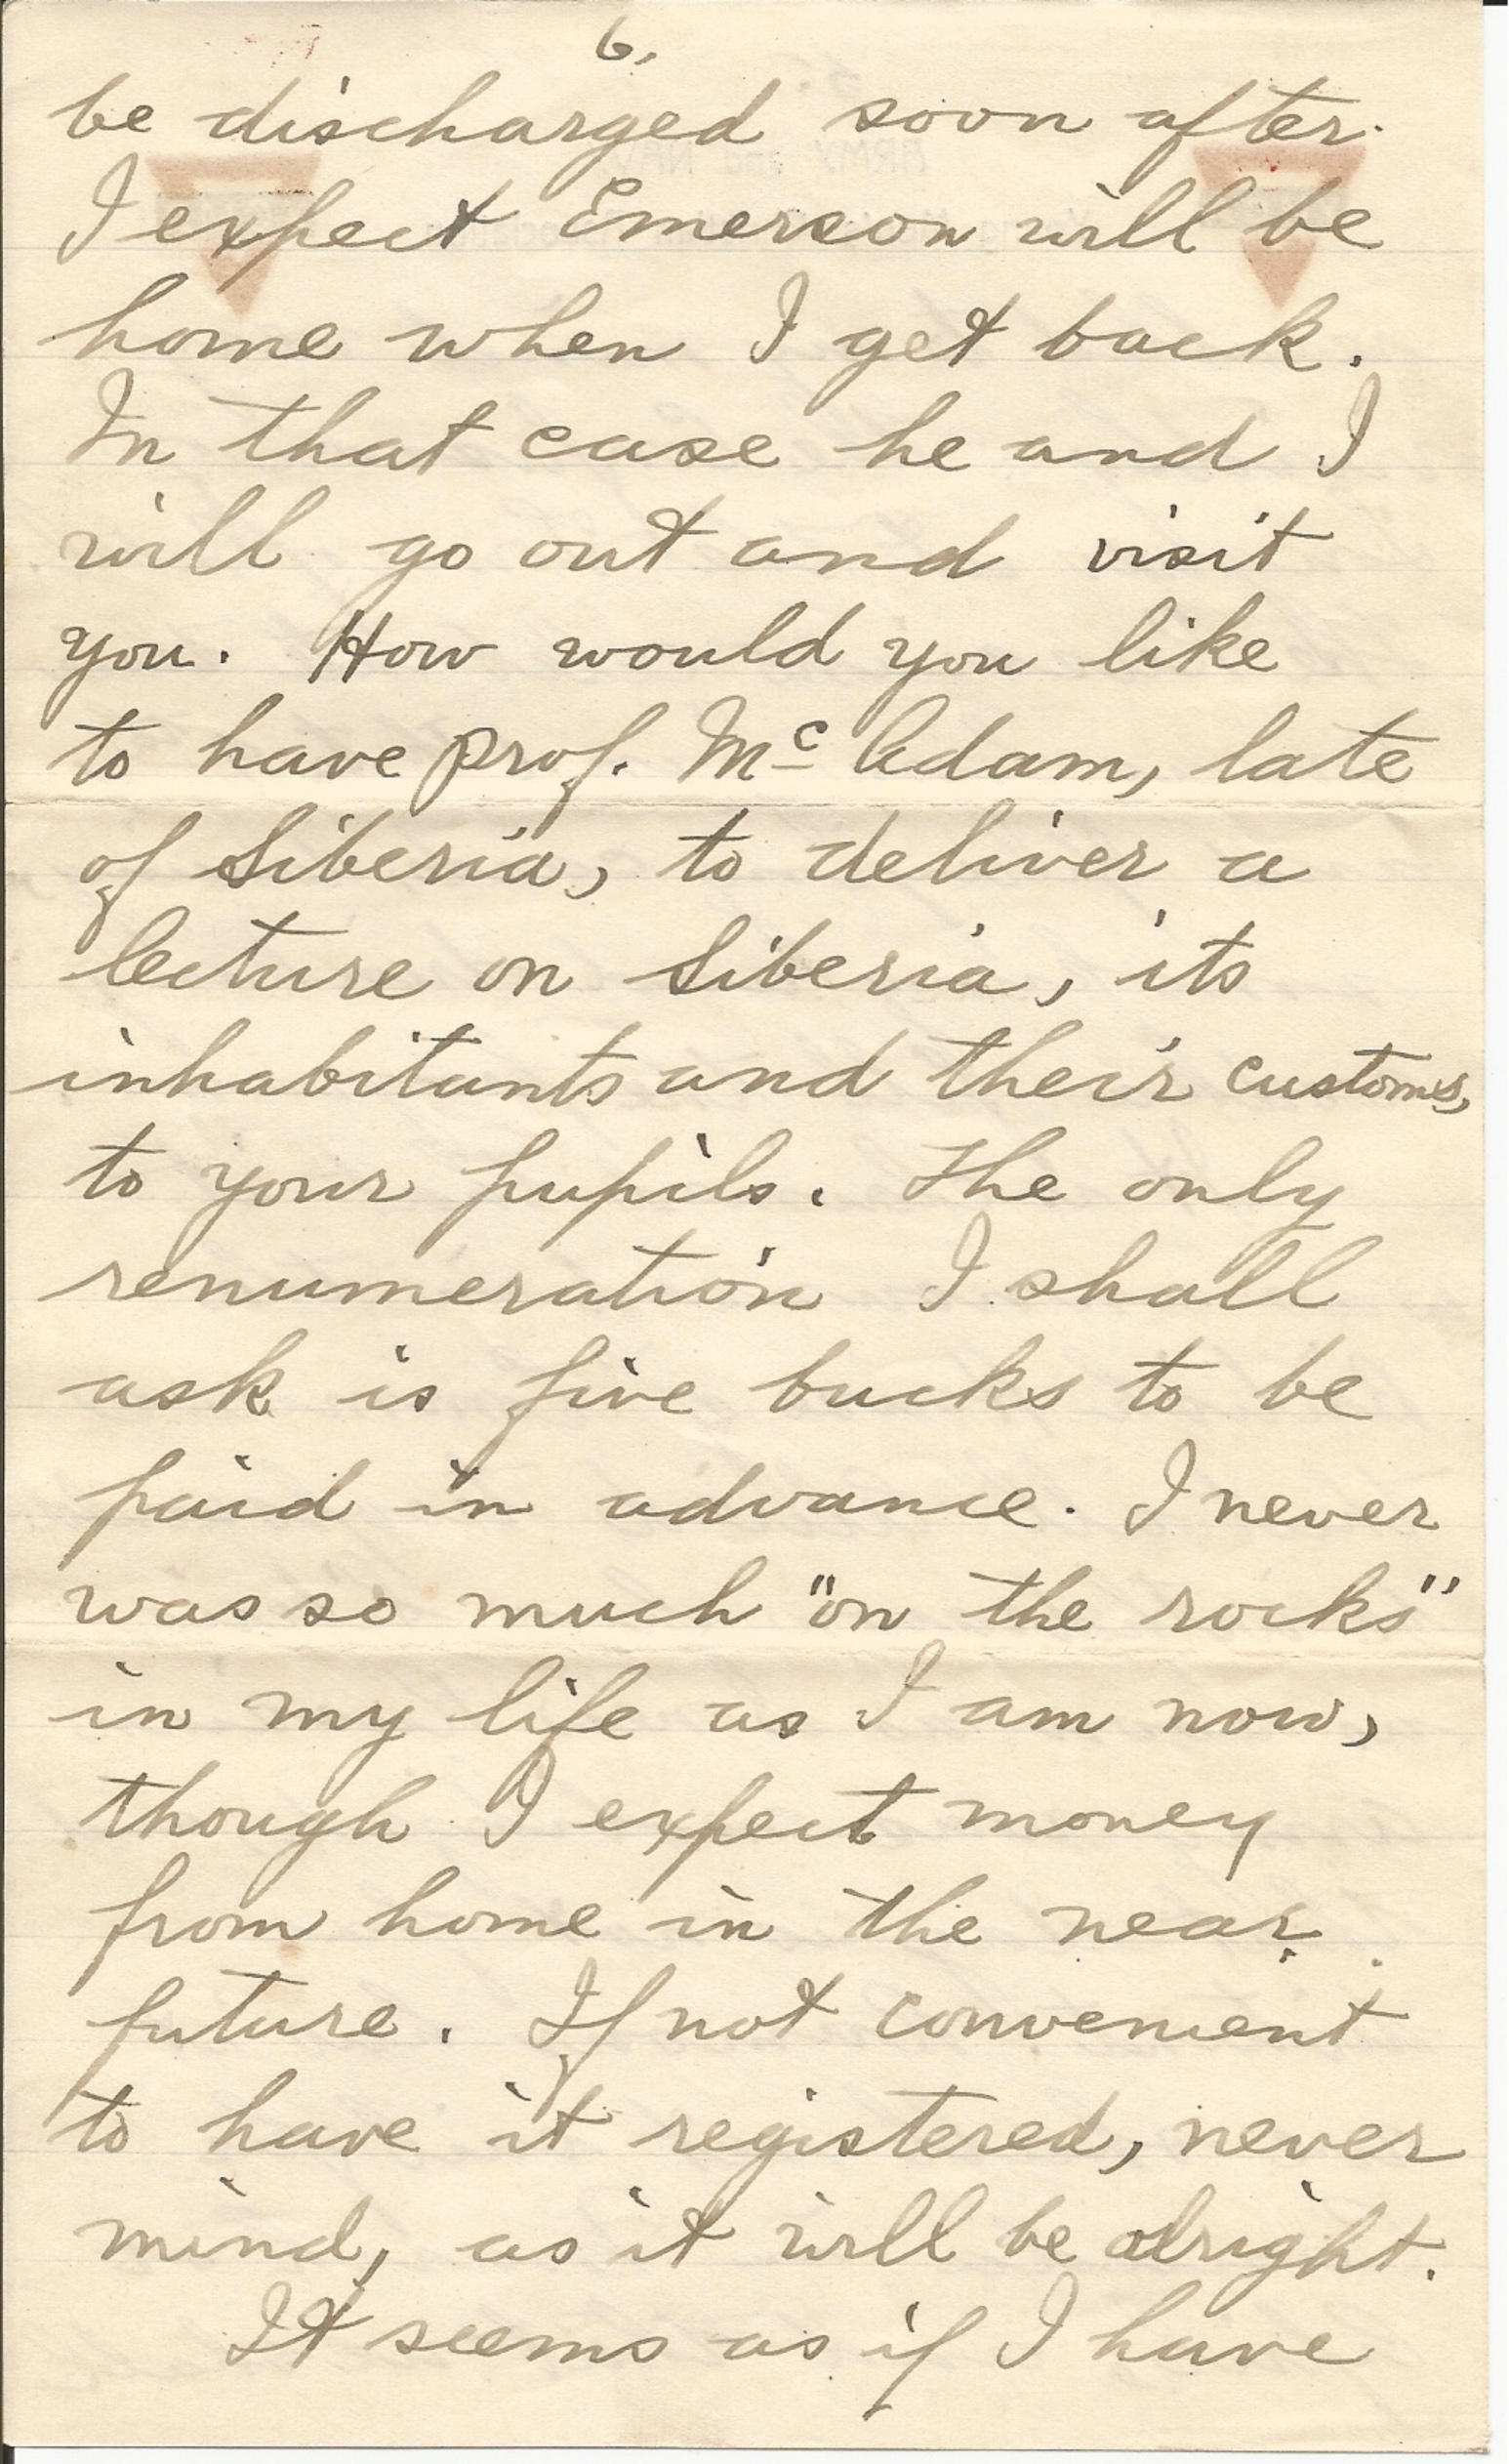 6.
be discharged soon after.
I expect Emerson will be
home when I get back.
In that case he and I
will go out and visit
you. How would you like
to have Prof. Mc Adam, late
of Siberia, to deliver a
lecture on Siberia, its
inhabitants and their customs,
to your pupils. The only
renumeration I shall
ask is five bucks to be
paid in advance. I never
was so much "on the rocks"
in my life as I am now,
though I expect money
from home in the near
future. If not convenient
to have it registered, never
mind, as it will be alright.
It seems as if I have